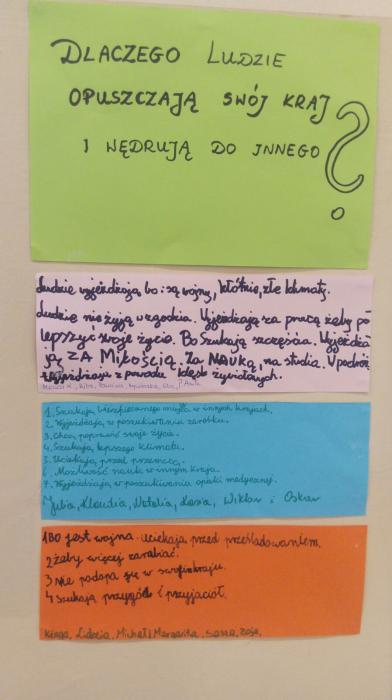 DLACZEGO LUDZIE
OPUSZCZAJĄ SWÓJ KRAJ
I WĘDRUJĄ DO INNEGO ?
Ludzie wyjeżdżają bo: są wojny, kłótnie, złe klimaty.
Ludzie nie żyją w zgodzie. Wyjeżdżają za pracą żeby po
lepszyć swoje życie. Bo szukają szczęścia. Wyjeżdża
ją ZA MIŁOŚCIĄ. Za NAUKĄ, na studia. W podróż.
Wyjeżdżają z powodu klęsk żywiołowych.
1. Szukają bezpiecznego miejsca w innych krajach.
2. Wyjeżdżają w poszukiwaniu zarobku.
3. Chcą poprawić swoje życie.
4. Szukają lepszego klimatu.
5. Uciekają przed przemocą.
6. Możliwość nauki w innym kraju.
7. Wyjeżdżają w poszukiwaniu opieki medycznej.
Julia, Klaudia, Natalia, Kasia, Wiktor i Oskar
1 BO jest wojna. uciekają przed prześladowaniem.
2 żeby więcej zarabiać.
3 nie podoba się w swoim kraju.
4 szukają przygód i przyjaciół.
Kinga, Lidzia, Michał, Margarita, Sasza, Zosia,